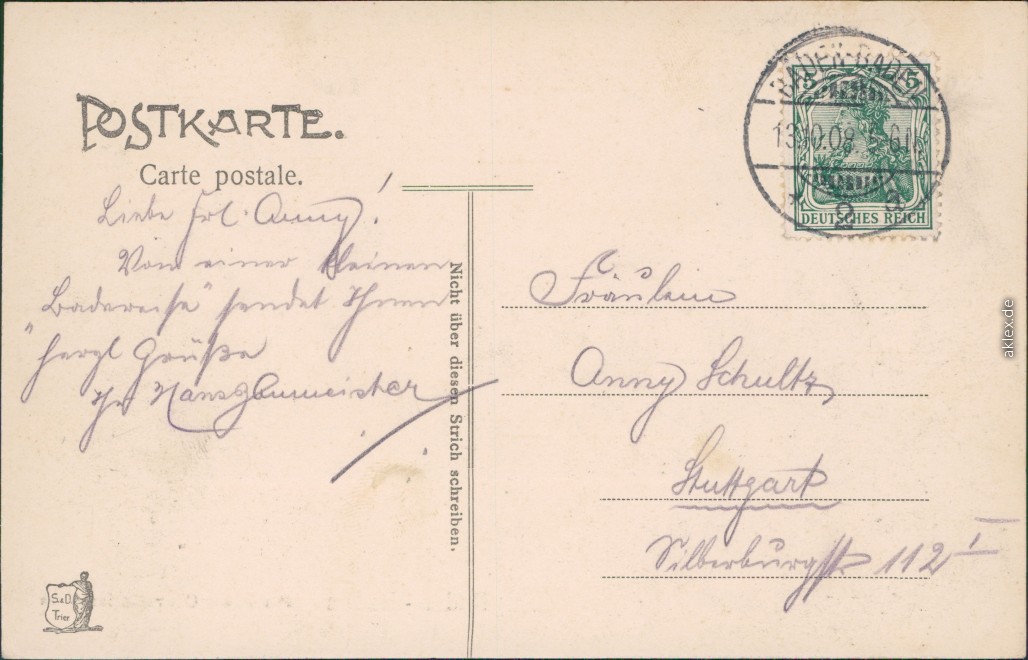 POSTKARTE.
Carte postale.
BADEN-BADEN
13.10.09. 5-6N.
2 a
5 5
DEUTSCHES REICH
Liebe Frl. Anny!
Von einer kleinen
"Badereise" sendet Ihnen
herzl Grüße
Ihr
Nicht über diesen Strich schreiben.
Fräulein
Anny Schultz
Stuttgart
Silberburgstr 112 I
S.&D.
Trier
aklex.de